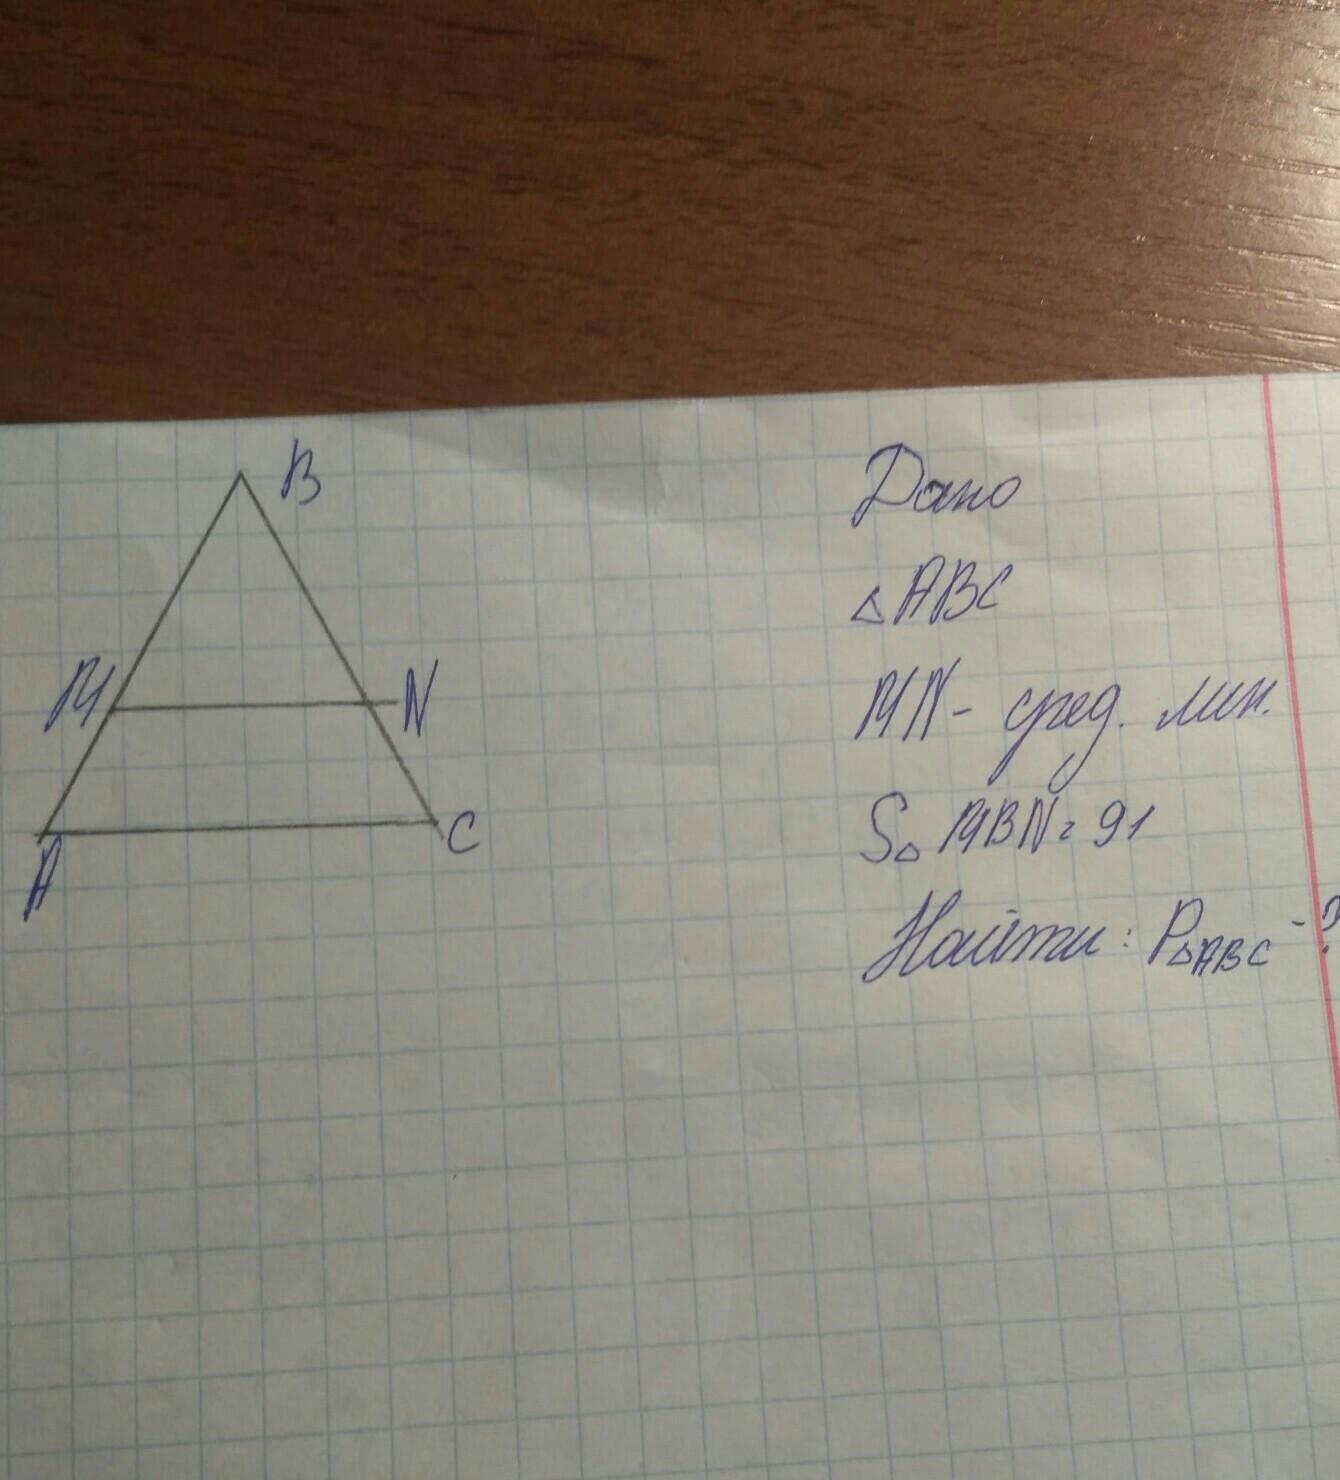 B
M
N
A
C
Дано
△ABC
MN - сред. лин.
S△ MBN = 91
Найти: P△ABC - ?